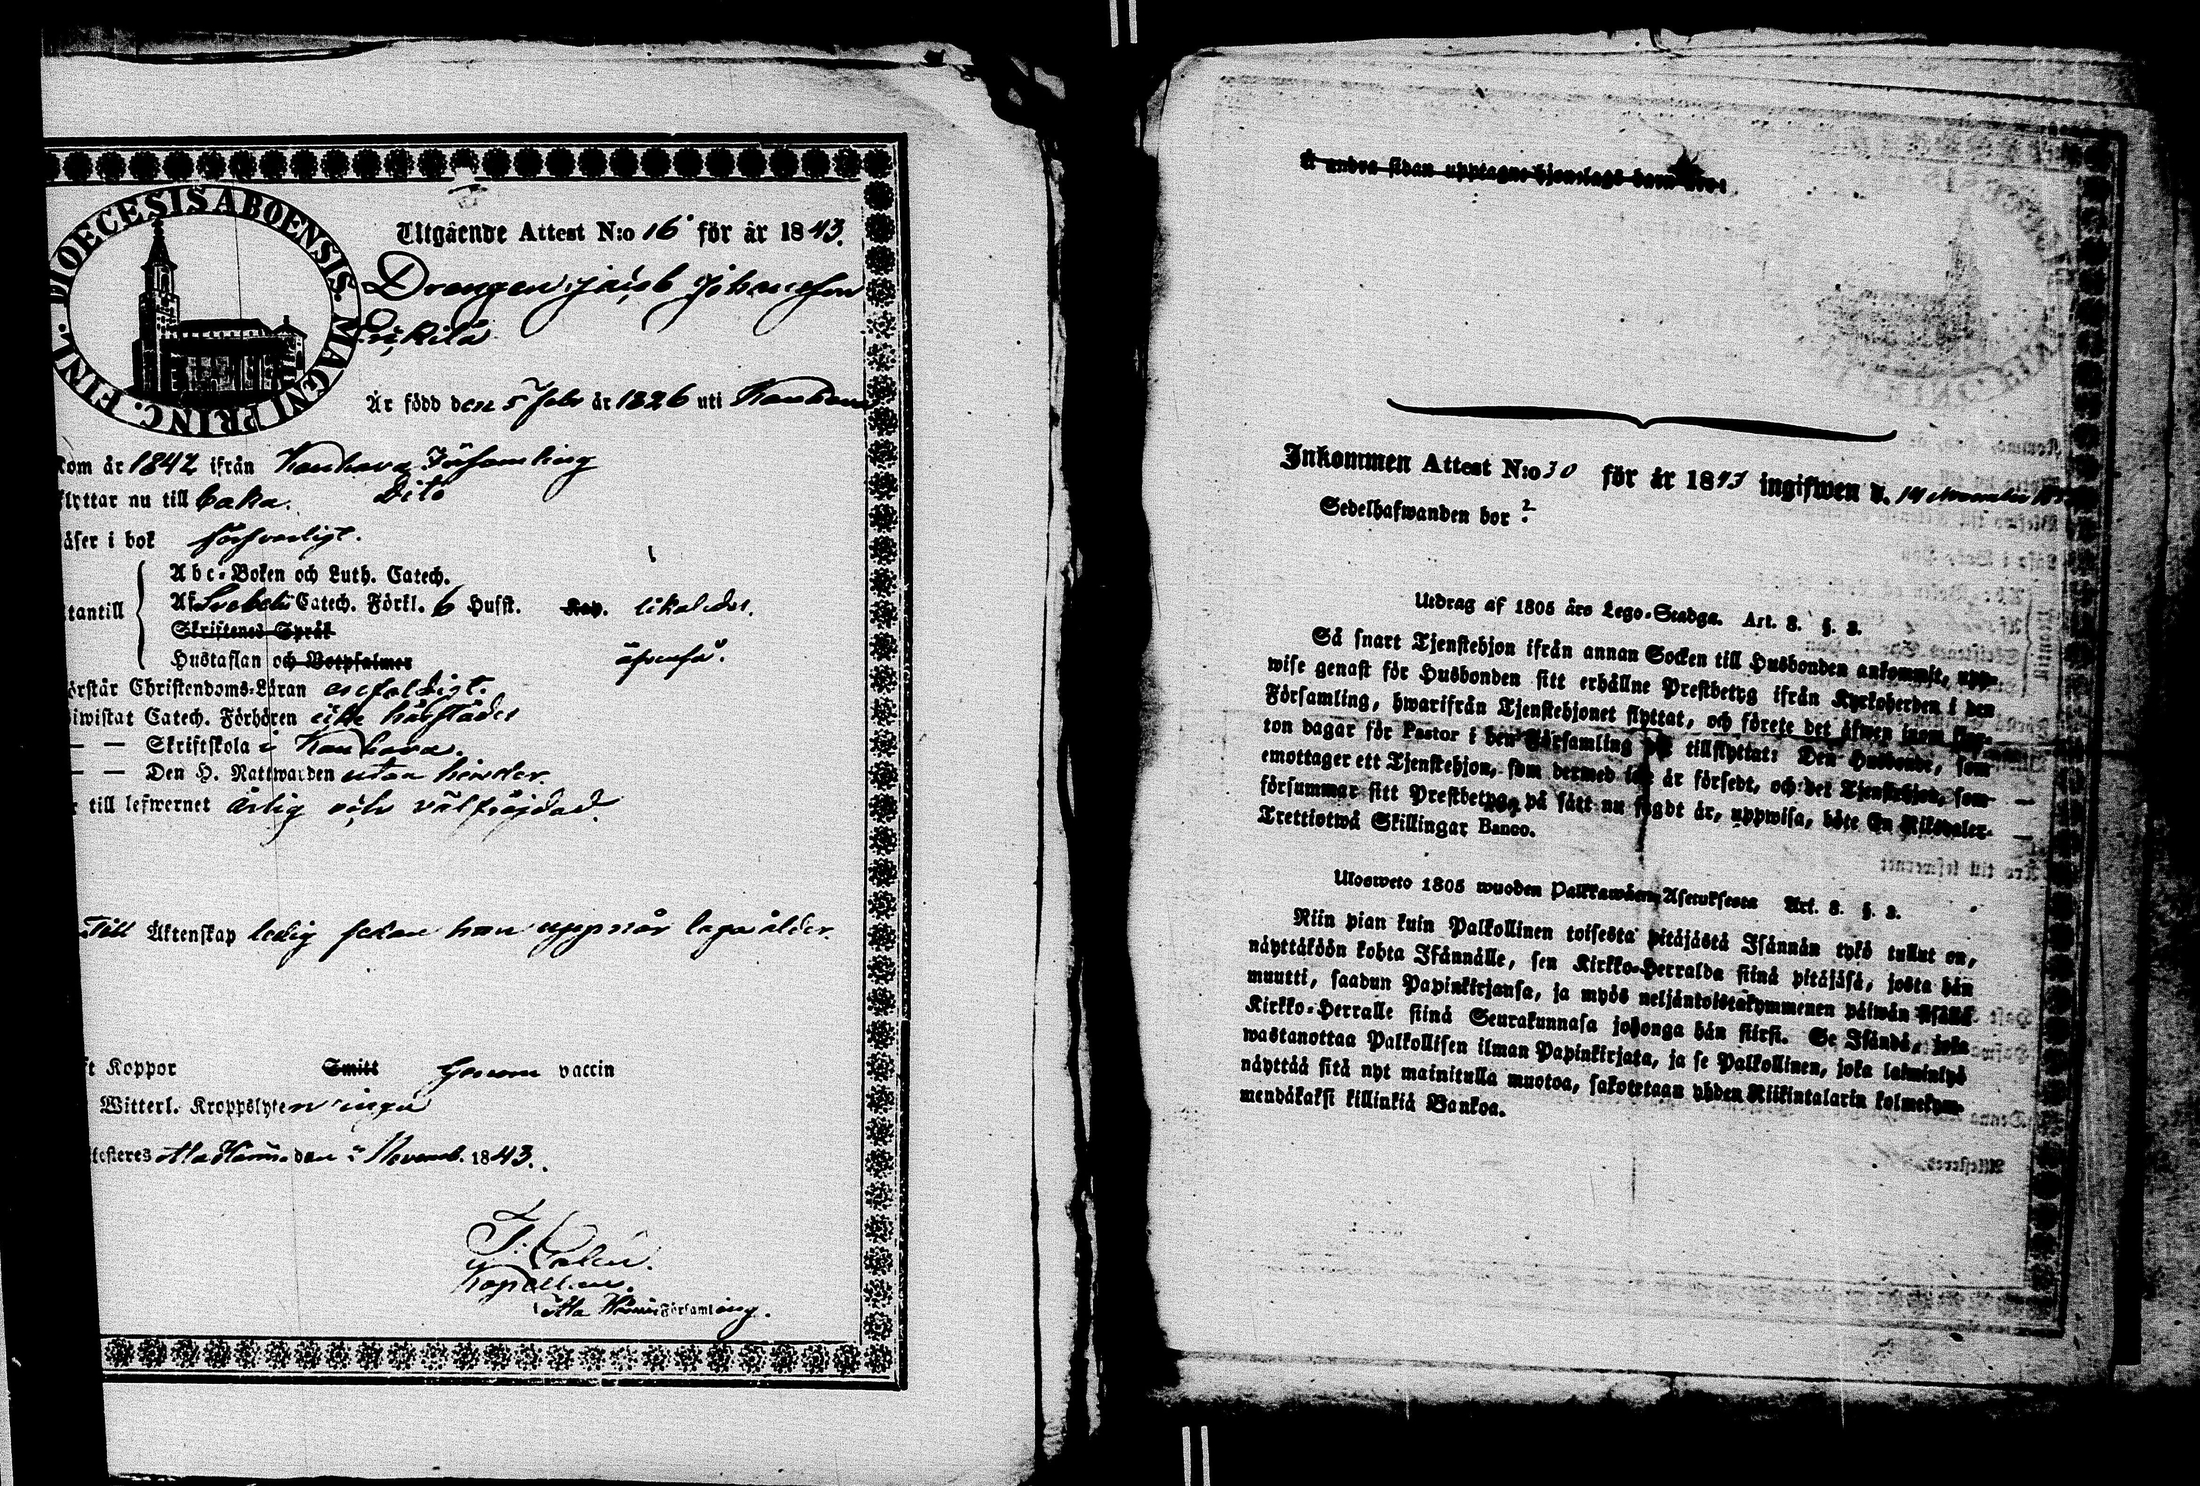 FINL. DIOECESIS ABOENSIS. MAGNI PRINC.
Utgående Attest N:o 16 för år 1843.
Drengen Jacob Johansson
År född den 5 Febr år 1826 uti Kauhava
Kom år 1842 ifrån Kauhava Församling
flyttar nu till baka. Dito
läser i bok försvarligt.
Abc-Boken och Luth. Catech.
utantill Af Svebelii Catech. Förkl. 6 Hufst. likaledes.
Skriftenes Språk
Hustaflan och Botpsalmer äfvenså.
örstår Christendoms-Läran enfaldigt.
iwistat Catech. Förhören
— — Skriftskola i Kauhava.
— — Den H. Nattwarden utan hinder.
r till lefwernet ärlig och välfrejdad.
Till Äktenskap ledig sedan han uppnår laga ålder.
ft Koppor Smitt Genom vaccin
Witterl. Kroppslyten inga
ttesteres den Novemb. 1843.
Kapellan
Församling.
Å andra sidan upptagne Hjonelags barn äro:
Inkommen Attest N:o 30 för år 1843 ingifwen d. 14 November
Sedelhafwanden bor ?
Utdrag af 1805 års Lego-Stadga. Art. 8. §. 3.
Så snart Tjenstehjon ifrån annan Socken till Husbonden ankommit, upp-
wise genast för Husbonden sitt erhållne Prestbetyg ifrån Kyrkoherden i den
Församling, hwarifrån Tjenstehjonet flyttat, och förete det äfwen inom fjor-
ton dagar för Pastor i den Församling det tillflyttat: Den Husbonde, som
emottager ett Tjenstehjon, som dermed icke är försedt, och det Tjenstehjon, som
försummar sitt Prestbetyg, på sätt nu sagdt är, uppwisa, böte En Riksdaler
Trettiotwå Skillingar Banco.
Ulosweto 1805 wuoden Palkkawäen Asetuksesta Art. 8. §. 3.
Niin pian kuin Palkollinen toisesta pitäjästä Isännän tykö tullut on,
näyttäköön kohta Isännälle, sen Kirkko-Herralda siinä pitäjäsä, josta hän
muutti, saadun Papinkirjansa, ja myös neljäntoistakymmenen päiwän sisällä
Kirkko-Herralle siinä Seurakunnasa johonga hän siirsi. Se Isändä, joka
wastanottaa Palkollisen ilman Papinkirjata, ja se Palkollinen, joka laiminlyö
näyttää sitä nyt mainitulla muotoa, sakotetaan yhden Riikintalarin kolmekym-
mendäkaksi killinkiä Bankoa.